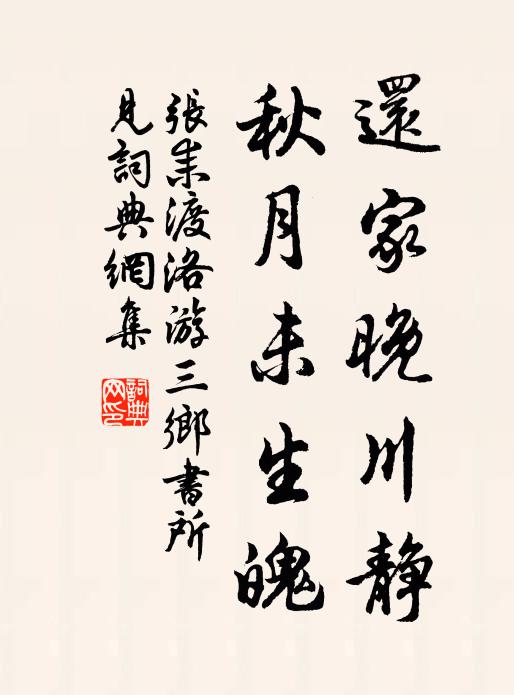 還家晚川静
秋月未生魄
張耒渡洛游三鄉書所
見詞典網集
詞典网印